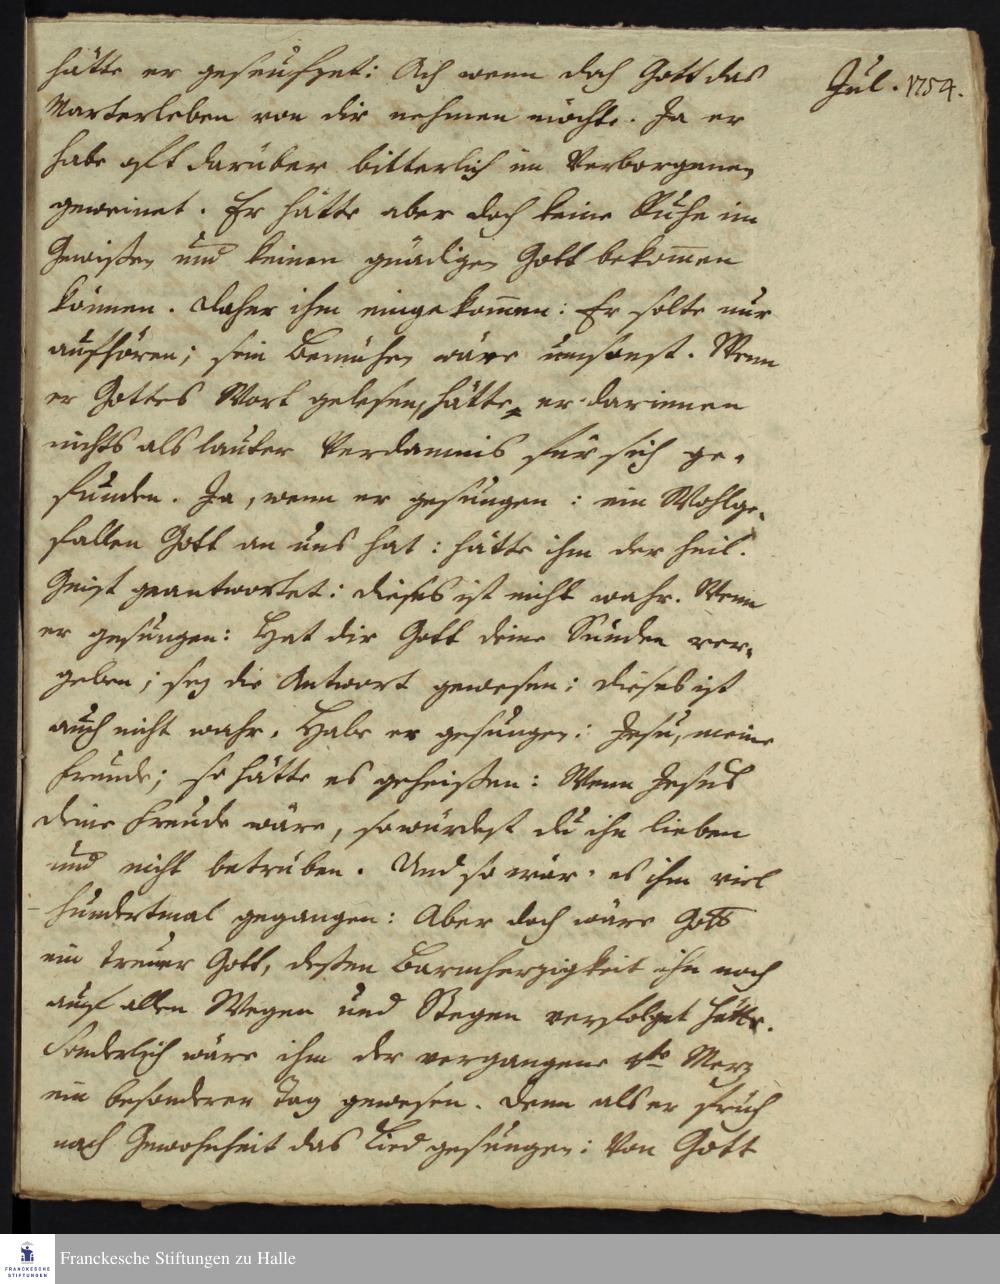 Jul. 1754.
hätte er geseufzet: Ach wenn doch Gott das
Marterleben von dir nehmen möchte. Ja er
habe oft darüber bitterlich im Verborgenen
geweinet. Er hätte aber doch keine Ruhe im
Gewißen und keinen gnädigen Gott bekom̅en
können. Daher ihm eingekom̅en: Er solte nur
aufhören; sein Bemühen wäre umsonst. Wenn
er Gottes Wort gelesen, hätte er darinnen
nichts als lauter Verdamnis für sich ge-
funden. Ja, wenn er gesungen: ein Wohlge-
fallen Gott an uns hat: hätte ihm der heil.
Geist geantwortet: dieses ist nicht wahr. Wenn
er gesungen: Hat dir Gott deine Sünden ver-
geben; sey die Antwort gewesen: dieses ist
auch nicht wahr. Habe er gesungen: Jesu, meine
Freude; so hätte es geheißen: Wenn Jesus
deine Freude wäre, so würdest du ihn lieben
und nicht betrüben. Und so wär es ihm viel
hundertmal gegangen: Aber doch wäre Gott
ein treuer Gott, deßen Barmherzigkeit ihn noch
auf allen Wegen und Stegen verfolget hätte.
Sonderlich wäre ihm der vergangene Merz
ein besonderer Tag gewesen. Denn als er früh
nach Gewohnheit das Lied gesungen: Von Gott
Franckesche Stiftungen zu Halle
FRANCKESCHE
STIFTUNGEN